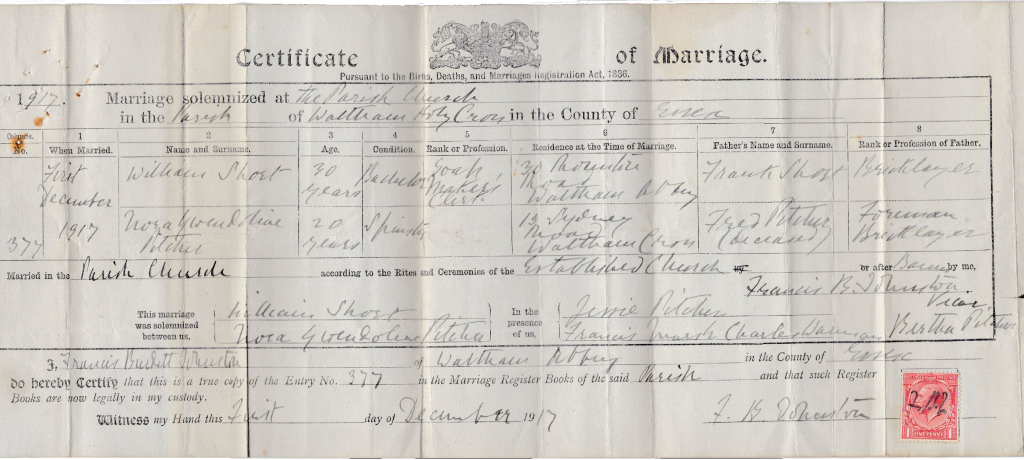 Certificate of Marriage.
Pursuant to the Births, Deaths, and Marriages Registration Act, 1836.
1917. Marriage solemnized at the Parish Church
in the Parish of Waltham Holy Cross in the County of Essex
Columns. 1 2 3 4 5 6 7 8
No. When Married. Name and Surname. Age. Condition. Rank or Profession. Residence at the Time of Marriage. Father's Name and Surname. Rank or Profession of Father.
First William Short 30 Bachelor 30 Frank Short Bricklayer
December years Maker's Road
Clerk Waltham Abbey
1917 Nora Gwendoline 20 Spinster 12 Sydney Fred Pitcher Foreman
377 Pitcher years Road (deceased) Bricklayer
Waltham Cross
Married in the Parish Church according to the Rites and Ceremonies of the Established Church by or after Banns by me,
Francis B. Johnston
Vicar
This marriage was solemnized between us, William Short In the presence of us, Jessie Pitcher
Nora Gwendoline Pitcher Francis Charles Bertha Pitcher
I, Francis Burdett Johnston of Waltham Abbey in the County of Essex
do hereby Certify that this is a true copy of the Entry No. 377 in the Marriage Register Books of the said Parish and that such Register
Books are now legally in my custody.
Witness my Hand this First day of December 1917 F. B. Johnston
1 ONE PENNY 1